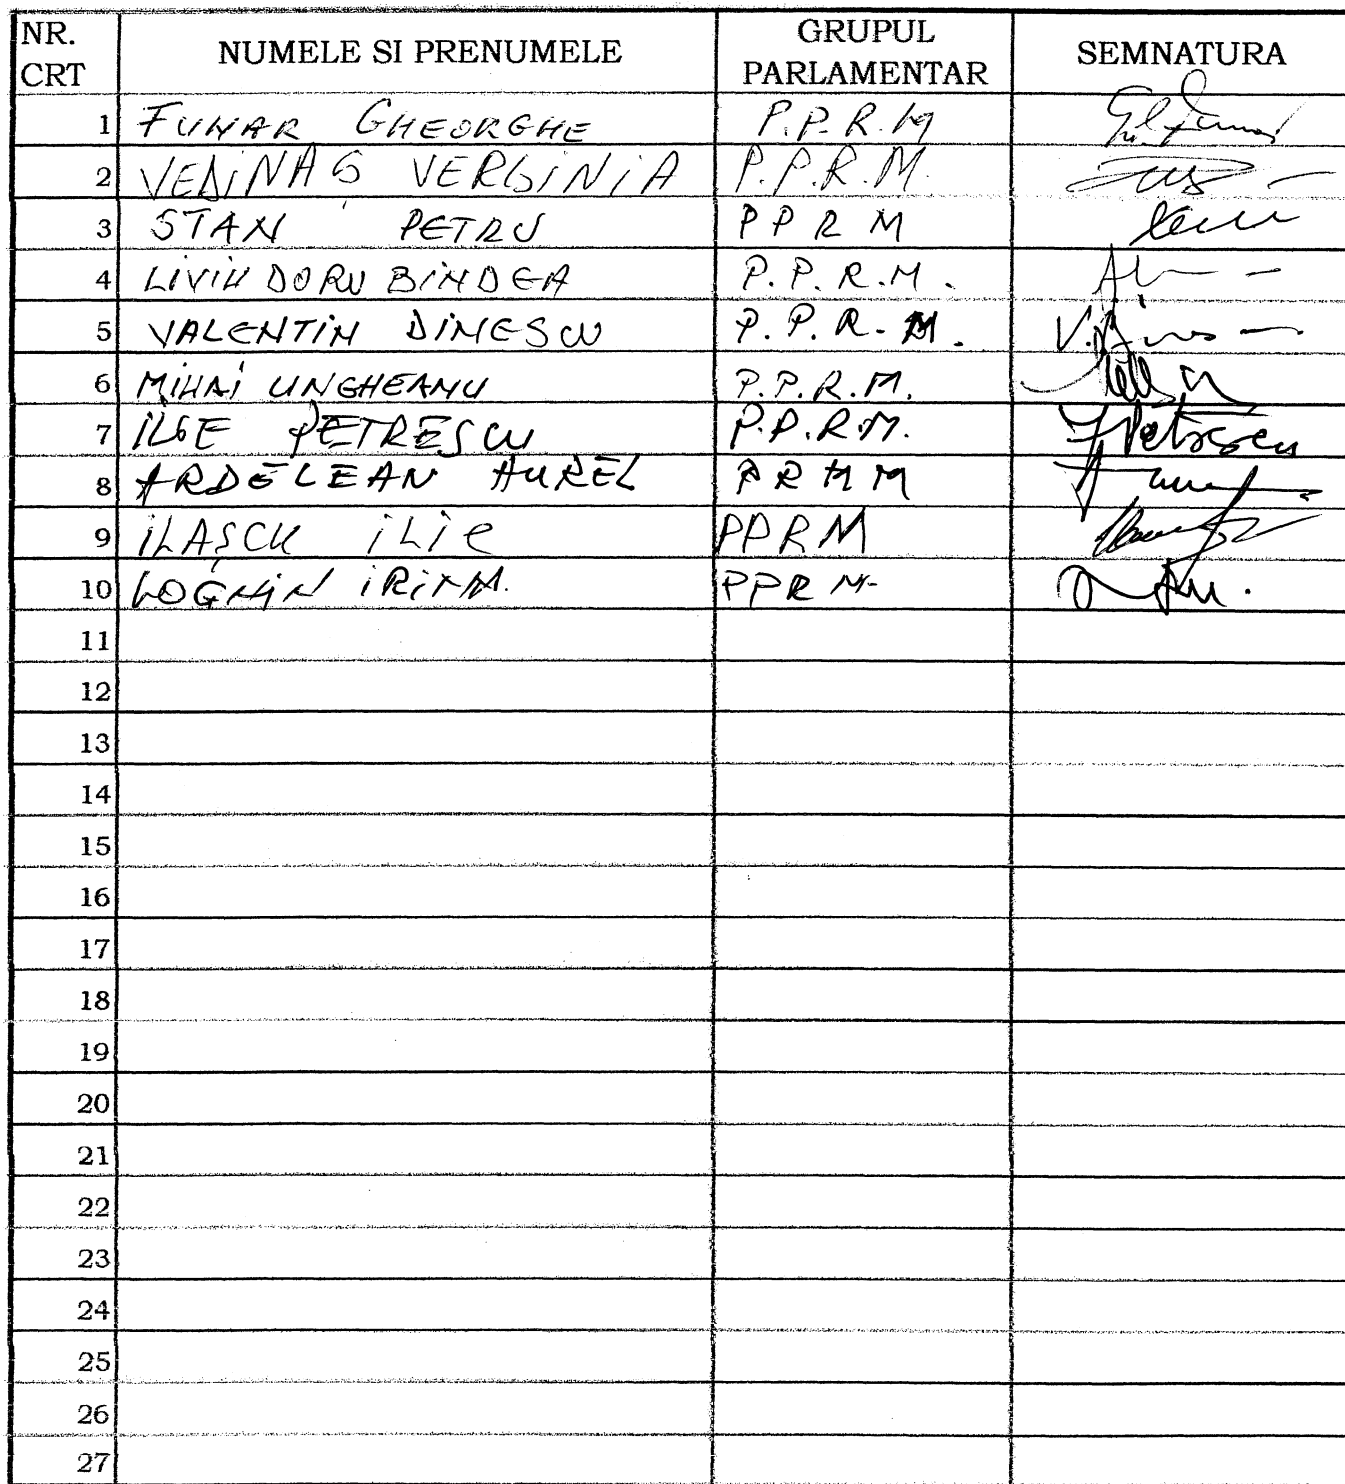 NR. CRT NUMELE SI PRENUMELE GRUPUL PARLAMENTAR SEMNATURA
1 FUNAR GHEORGHE P.P.R.M
2 VEDINAŞ VERGINIA P.P.R.M.
3 STAN PETRU P P R M
4 LIVIU DORU BINDEA P.P.R.M.
5 VALENTIN DINESCU P.P.R.M.
6 MIHAI UNGHEANU P.P.R.M.
7 ILIE PETRESCU P.P.R.M. Petrescu
8 ARDELEAN AUREL
9 ILAŞCU ILIE PPRM
10 LOGHIN IRINA. PPRM
11
12
13
14
15
16
17
18
19
20
21
22
23
24
25
26
27